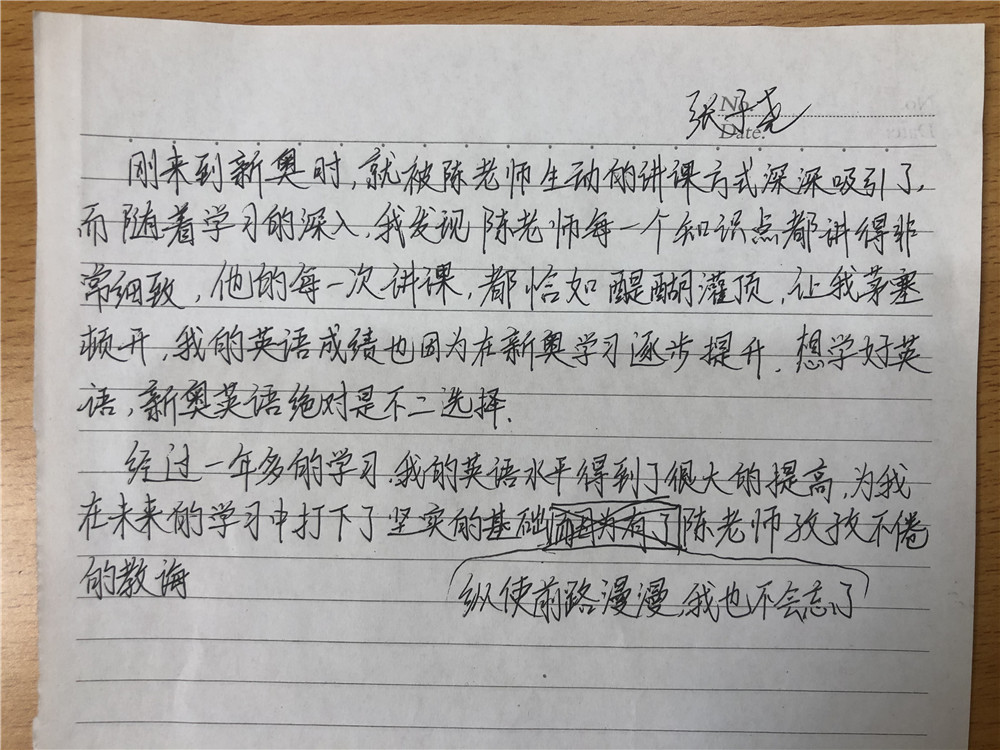 张予尧
No.
Date.
刚来到新奥时,就被陈老师生动的讲课方式深深吸引了,
而随着学习的深入,我发现陈老师每一个知识点都讲得非
常细致,他的每一次讲课,都恰如醍醐灌顶,让我茅塞
顿开,我的英语成绩也因为在新奥学习逐步提升.想学好英
语,新奥英语绝对是不二选择.
经过一年多的学习.我的英语水平得到了很大的提高,为我
在未来的学习中打下了坚实的基础因为有了陈老师孜孜不倦
的教诲
纵使前路漫漫,我也不会忘了